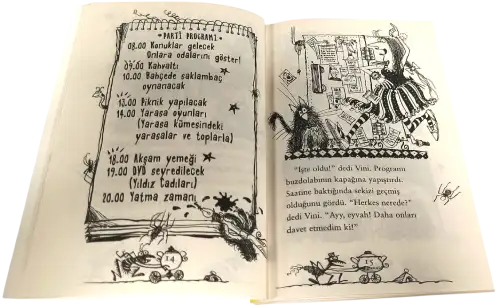 PARTİ PROGRAMI
08.00 Konuklar gelecek
Onlara odalarını göster!
09.00 Kahvaltı
10.00 Bahçede saklambaç
oynanacak
13.00 Piknik yapılacak
14.00 Yarasa oyunları
(Yarasa kümesindeki
yarasalar ve toplarla)
18.00 Akşam yemeği
19.00 DVD seyredilecek
(Yıldız Cadıları)
20.00 Yatma zamanı
14
"İşte oldu!" dedi Vini. Programı
buzdolabının kapağına yapıştırdı.
Saatine baktığında sekizi geçmiş
olduğunu gördü. "Herkes nerede?"
dedi Vini. "Ayy, eyvah! Daha onları
davet etmedim ki!"
15